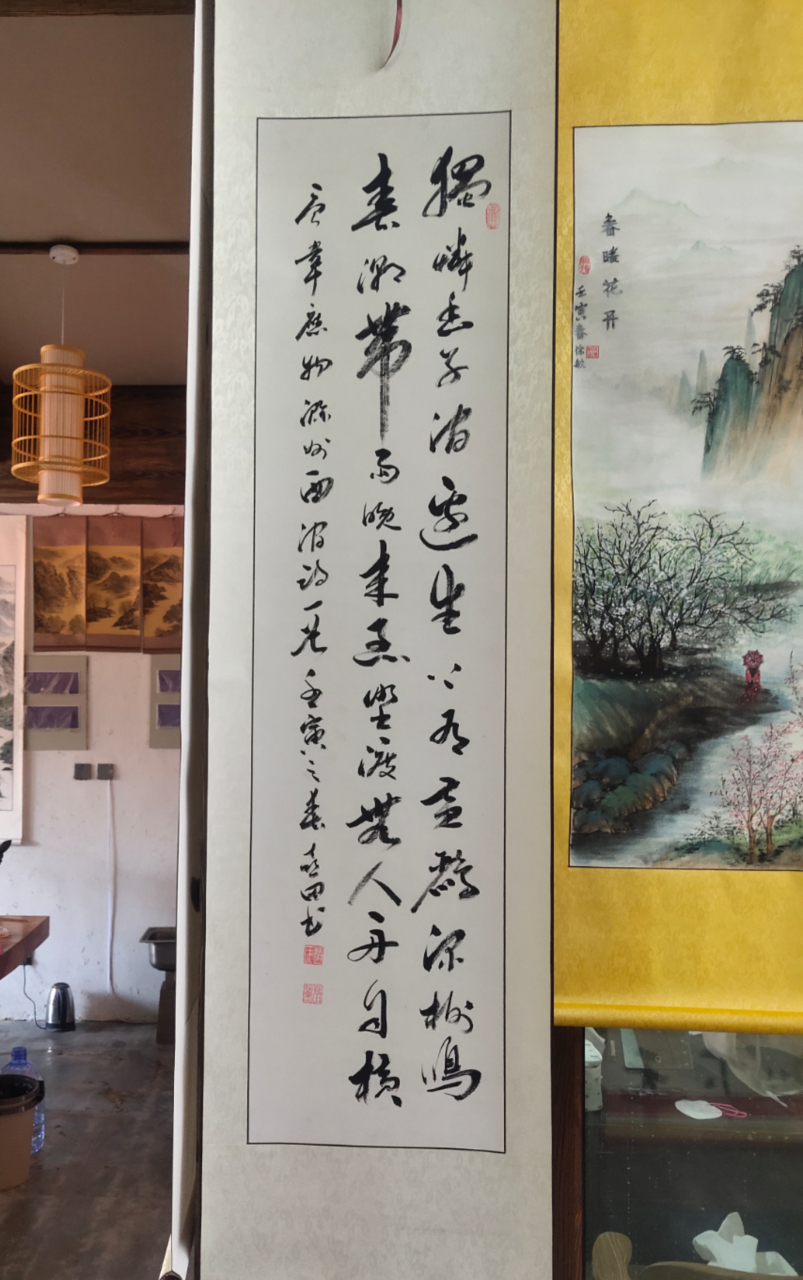 獨憐幽草澗邊生上有黃鸝深樹鳴
春潮帶雨晚來急野渡無人舟自橫
唐韋應物滁州西澗詩一首壬寅之春田书
春暖花开
壬寅春